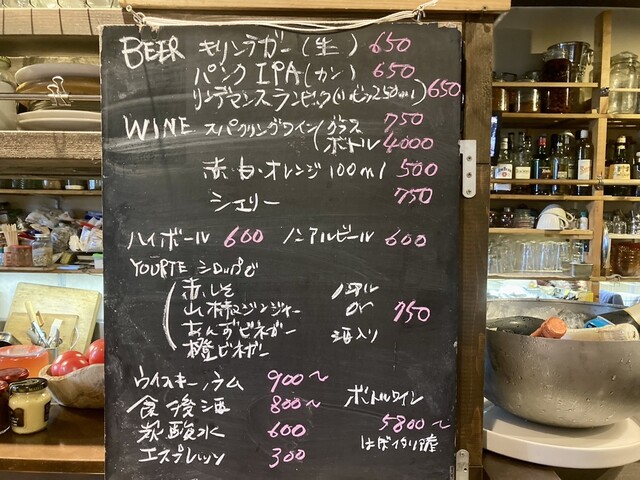 BEER キリンラガー(生) 650
パンクIPA(カン) 650
リンデマンスランビック(ﾋﾞﾝ250ml) 650
WINE スパークリングワイン(グラス 750
ボトル 4000
赤・白・オレンジ100ml 500
シェリー 750
ハイボール 600 ノンアルビール 600
YOURTE シロップで
赤しそ ノンアル
山椒ジンジャー or 750
あんずビネガー 酒入り
橙ビネガー
ウイスキー/ラム 900〜
食後酒 800〜 ボトルワイン
炭酸水 600 5800〜
エスプレッソ 300 ほぼイタリア産